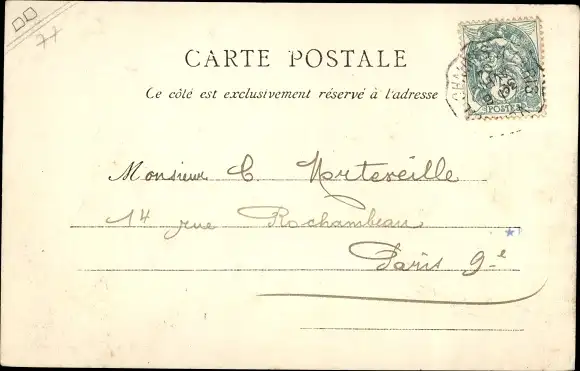 77
CARTE POSTALE
Ce côté est exclusivement réservé à l'adresse
POSTES
Monsieur C. Morteveille
14 rue Rochambeau
Paris 9e